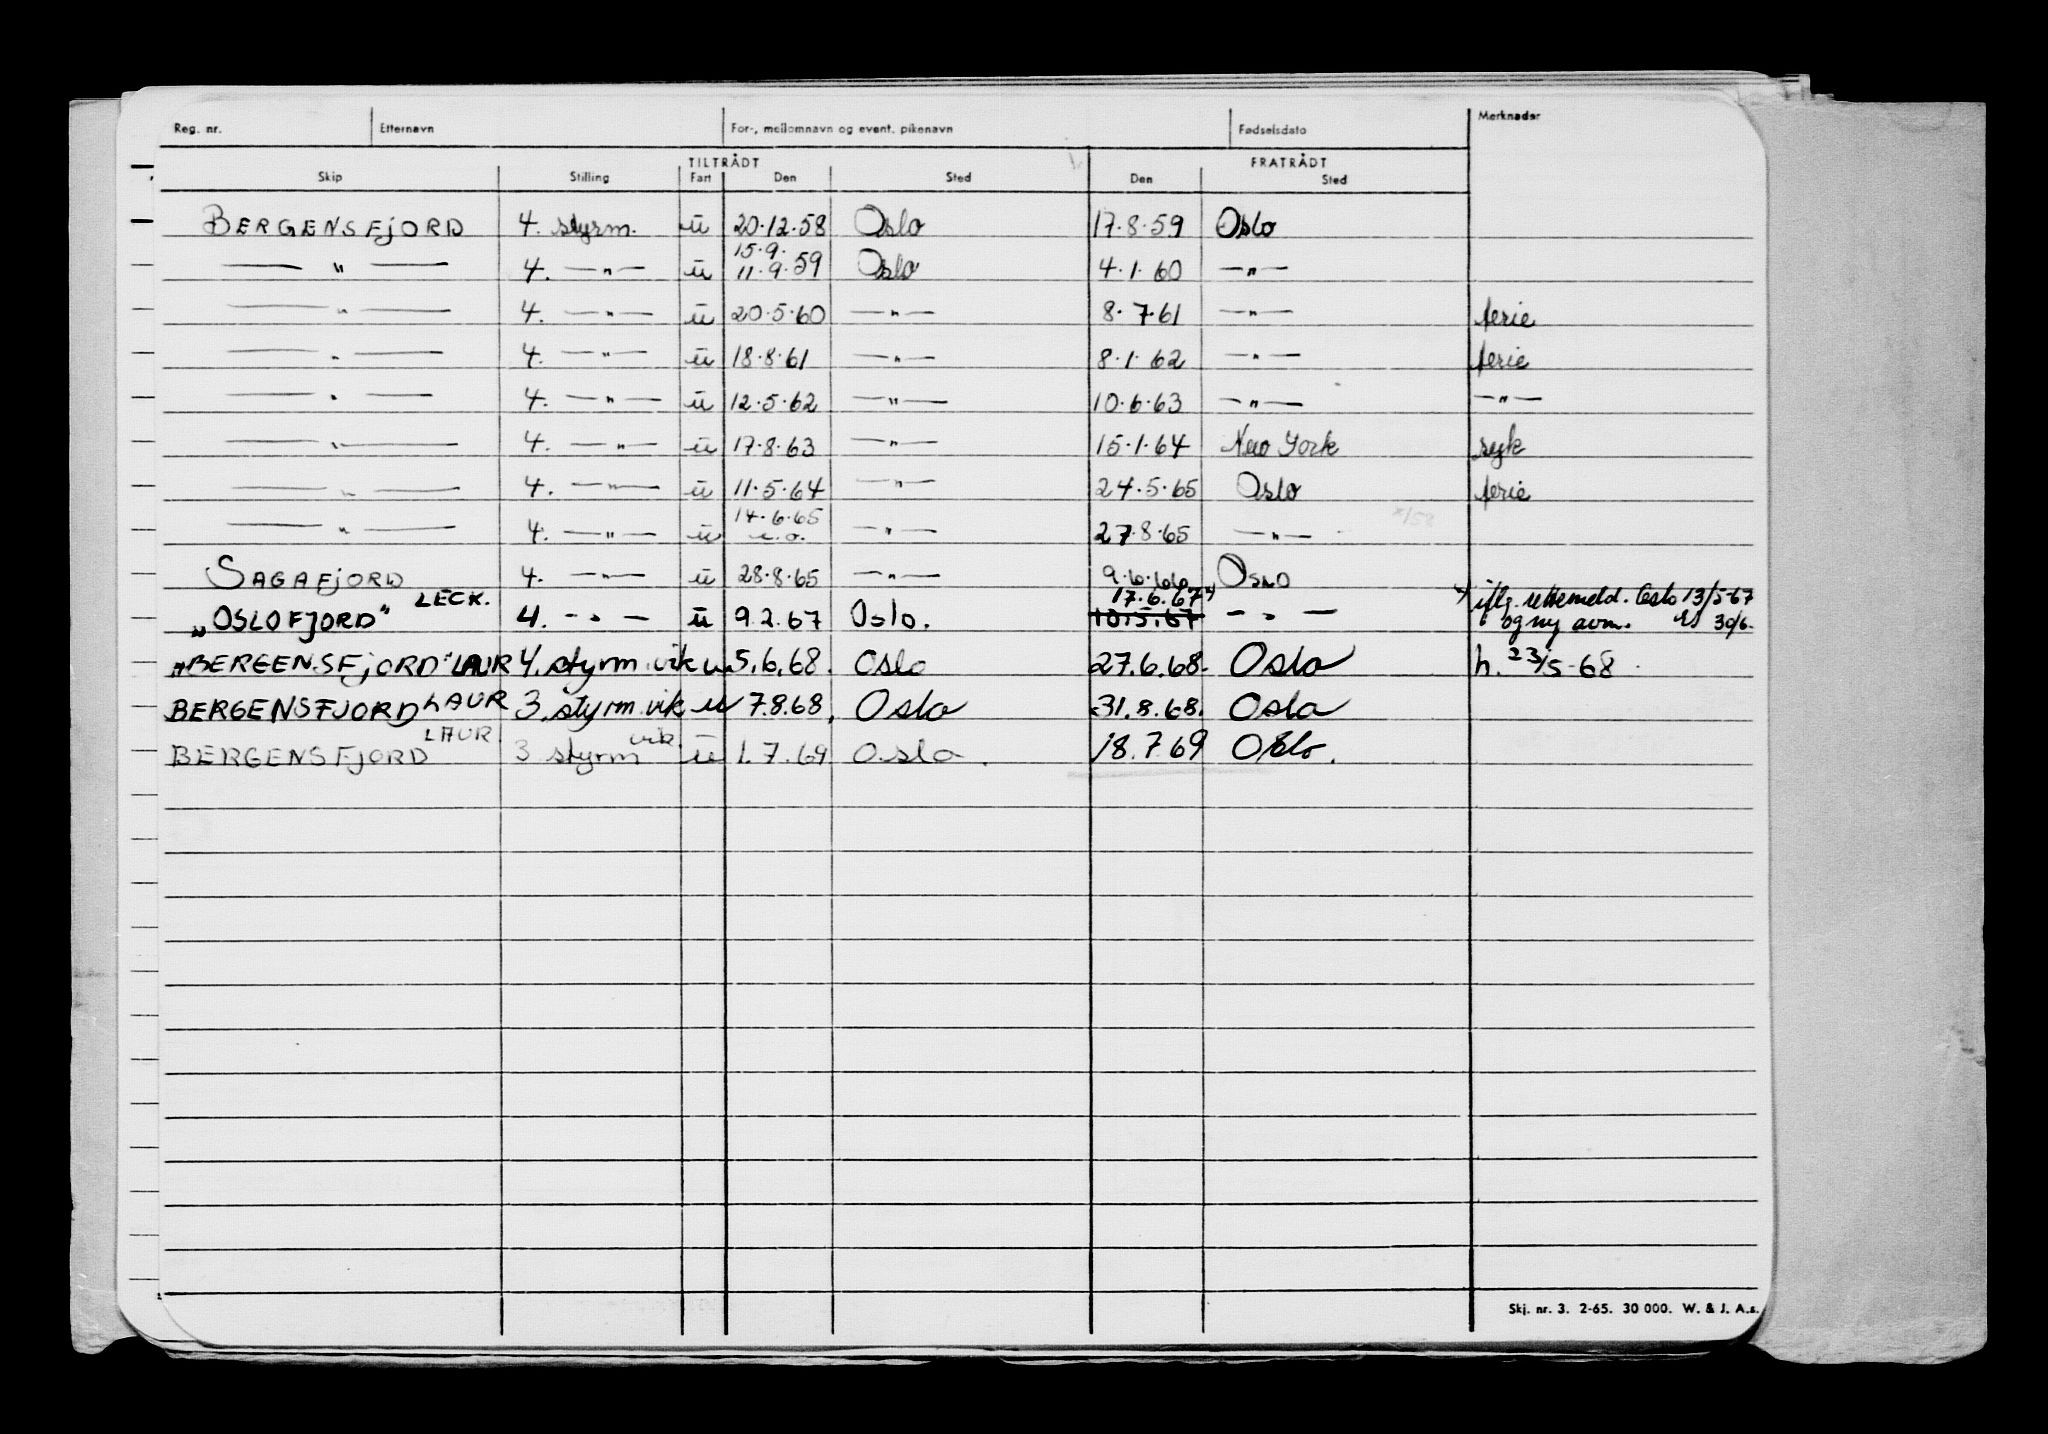 Reg. nr. Etternavn For-, mellomnavn og event. pikenavn Fødselsdato Merknader
TILTRÅDT FRATRÅDT
Skip Stilling Fart Den Sted Den Sted
BERGENSFJORD 4. styrm. u 20.12.58 Oslo 17.8.59 Oslo
15.9.
— " — 4. — " — u 11.9.59 Oslo 4.1.60 — " —
— " — 4. — " — u 20.5.60 — " — 8.7.61 — " — ferie
— " — 4. — " — u 18.8.61 — " — 8.1.62 — " — ferie
— " — 4. — " — u 12.5.62 — " — 10.6.63 — " — — " —
— " — 4. — " — u 17.8.63 — " — 15.1.64 New York syk
— " — 4. — " — u 11.5.64 — " — 24.5.65 Oslo ferie
14.6.65
— " — 4. — " — u — " — 27.8.65 — " —
SAGAFJORD 4. — " — u 28.8.65 — " — 9.6.66 OSLO
LECK. 17.6.67 x) x) iflg. Oslo 13/5-67
"OSLOFJORD" 4. — " — u 9.2.67 Oslo. 10.5.67 — " — og ny avm. 30/6.
"BERGENSFJORD" LAUR 4. styrm. vik u. 5.6.68. Oslo 27.6.68. Oslo h. 23/5-68
BERGENSFJORD LAUR 3. styrm. vik u 7.8.68. Oslo 31.8.68. Oslo
LAUR. vik.
BERGENSFJORD 3 styrm u 1.7.69 Oslo. 18.7.69 Oslo.
Skj. nr. 3. 2-65. 30 000. W. & J. A.s.